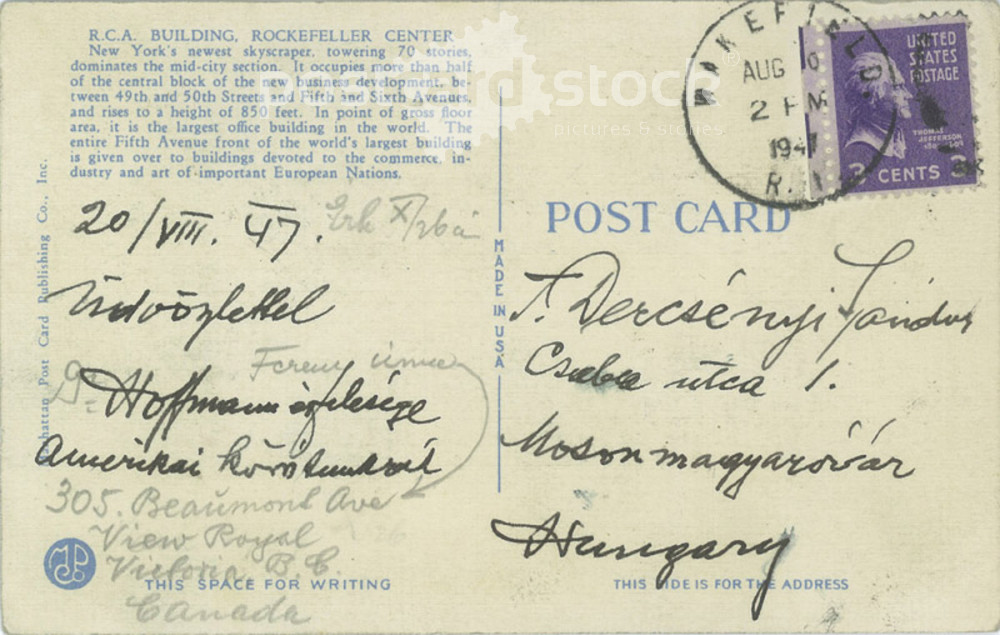 R.C.A. BUILDING, ROCKEFELLER CENTER
New York's newest skyscraper, towering 70 stories,
dominates the mid-city section. It occupies more than half
of the central block of the new business development, be-
tween 49th and 50th Streets and Fifth and Sixth Avenues,
and rises to a height of 850 feet. In point of gross floor
area, it is the largest office building in the world. The
entire Fifth Avenue front of the world's largest building
is given over to buildings devoted to the commerce, in-
dustry and art of important European Nations.
Manhattan Post Card Publishing Co., Inc.
20/VIII. 47.
Üdvözlettel
Ferenc
Hoffmann és felesége
Amerikai
305. Beaumont Ave
View Royal
Victoria B.C.
Canada
THIS SPACE FOR WRITING
MADE IN USA
WAKEFIELD
AUG
2 PM
1947
R.I
UNITED
STATES
POSTAGE
THOMAS
JEFFERSON
3 CENTS 3
POST CARD
T. Dercsényi Sándor
Csaba utca 1.
Mosonmagyaróvár
Hungary
THIS SIDE IS FOR THE ADDRESS
stock
pictures & stories